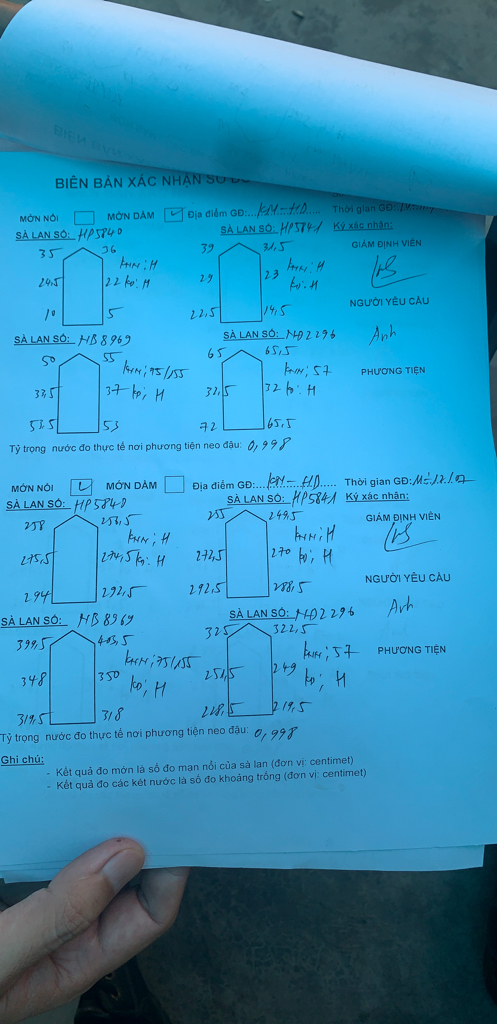 BIÊN BẢN XÁC NHẬN SỐ
MỚN NỔI MỚN DẦM Địa điểm GĐ: KM-HD Thời gian GĐ:
SÀ LAN SỐ: HP5840 SÀ LAN SỐ: HP5841 Ký xác nhận:
35 36 39 31,5 GIÁM ĐỊNH VIÊN
KNN; H KNN; H
24,5 22 KĐ: H 29 23 KĐ: H
10 5 22,5 14,5 NGƯỜI YÊU CẦU
SÀ LAN SỐ: NB8969 SÀ LAN SỐ: NĐ2296 Anh
50 55 65 65,5
KNN; 75/155 KNN; 57 PHƯƠNG TIỆN
33,5 37 KĐ; H 32,5 32 KĐ: H
53,5 53 72 65,5
Tỷ trọng nước đo thực tế nơi phương tiện neo đậu: 0,998
MỚN NỔI MỚN DẦM Địa điểm GĐ: KM-HD Thời gian GĐ:
SÀ LAN SỐ: HP5840 SÀ LAN SỐ: HP5841 Ký xác nhận:
258 253,5 255 249,5 GIÁM ĐỊNH VIÊN
KNN; H KNN; H
275,5 274,5 KĐ: H 272,5 270 KĐ; H
294 292,5 292,5 288,5 NGƯỜI YÊU CẦU
SÀ LAN SỐ: NB8969 SÀ LAN SỐ: NĐ2296 Anh
399,5 403,5 325 322,5
KNN; 75/155 KNN; 57 PHƯƠNG TIỆN
348 350 KĐ; H 251,5 249 KĐ; H
319,5 318 228,5 219,5
Tỷ trọng nước đo thực tế nơi phương tiện neo đậu: 0,998
Ghi chú:
- Kết quả đo mớn là số đo mạn nổi của sà lan (đơn vị: centimet)
- Kết quả đo các két nước là số đo khoảng trống (đơn vị: centimet)